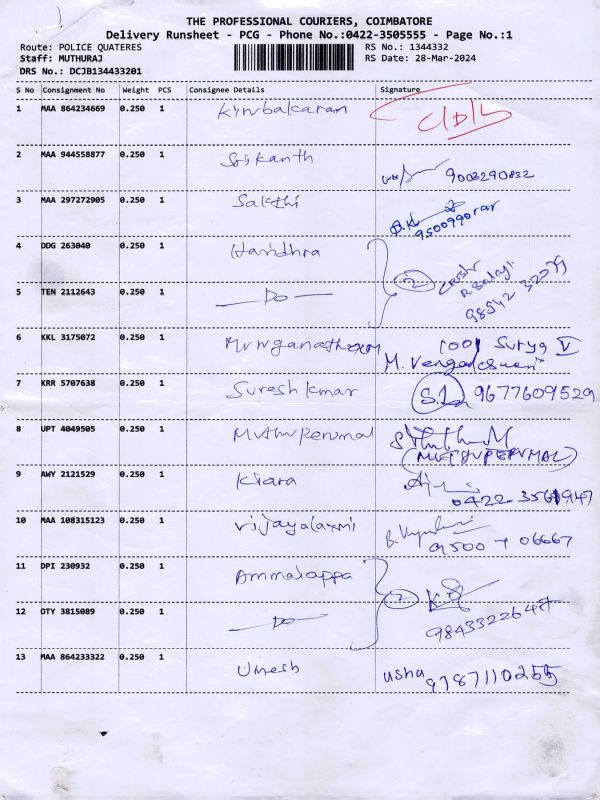 THE PROFESSIONAL COURIERS, COIMBATORE
Delivery Runsheet - PCG - Phone No.:0422-3505555 - Page No.:1
Route: POLICE QUATERES RS No.: 1344332
Staff: MUTHURAJ RS Date: 28-Mar-2024
DRS No.: DCJB134433201
S No Consignment No Weight PCS Consignee Details Signature
1 MAA 864234669 0.250 1 Kirubakaran
2 MAA 944558877 0.250 1 Srikanth 9003290832
3 MAA 297272905 0.250 1 Sakthi
4 DDG 263040 0.250 1 Haridhra 2
R. Balaji
98542 32079
5 TEN 2112643 0.250 1 — Do —
6 KKL 3175072 0.250 1 Muruganatham 1001 Surya V
M. Vengadeswari
7 KRR 5707638 0.250 1 Suresh kumar 9677609529
8 UPT 4049505 0.250 1 Muthuperumal
(MUTHUPERUMAL)
9 AWY 2121529 0.250 1 Kiara
0422-3561947
10 MAA 108315123 0.250 1 Vijayalaxmi
9500 7 06667
11 DPI 230932 0.250 1 Ammaiappa 2
12 OTY 3815089 0.250 1 — Do —
9843322647
13 MAA 864233322 0.250 1 Umesh usha 9787110255